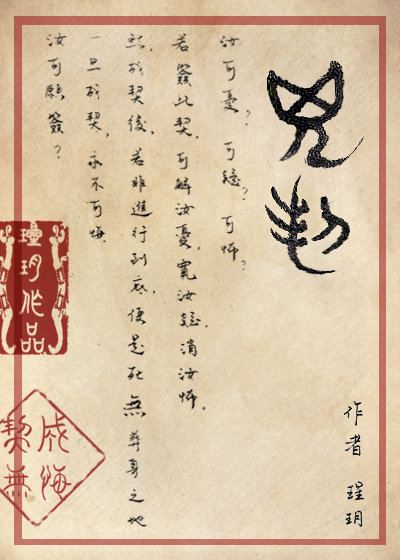 兇契
作者 瑝玥
汝可憂?可疑?可怖?
若簽此契,可解汝憂,寬汝疑,消汝怖。
然成契後,若非進行到底,便是死無葬身之地
一旦成契,永不可悔.
汝可願簽?
瑝玥作品
成契無悔